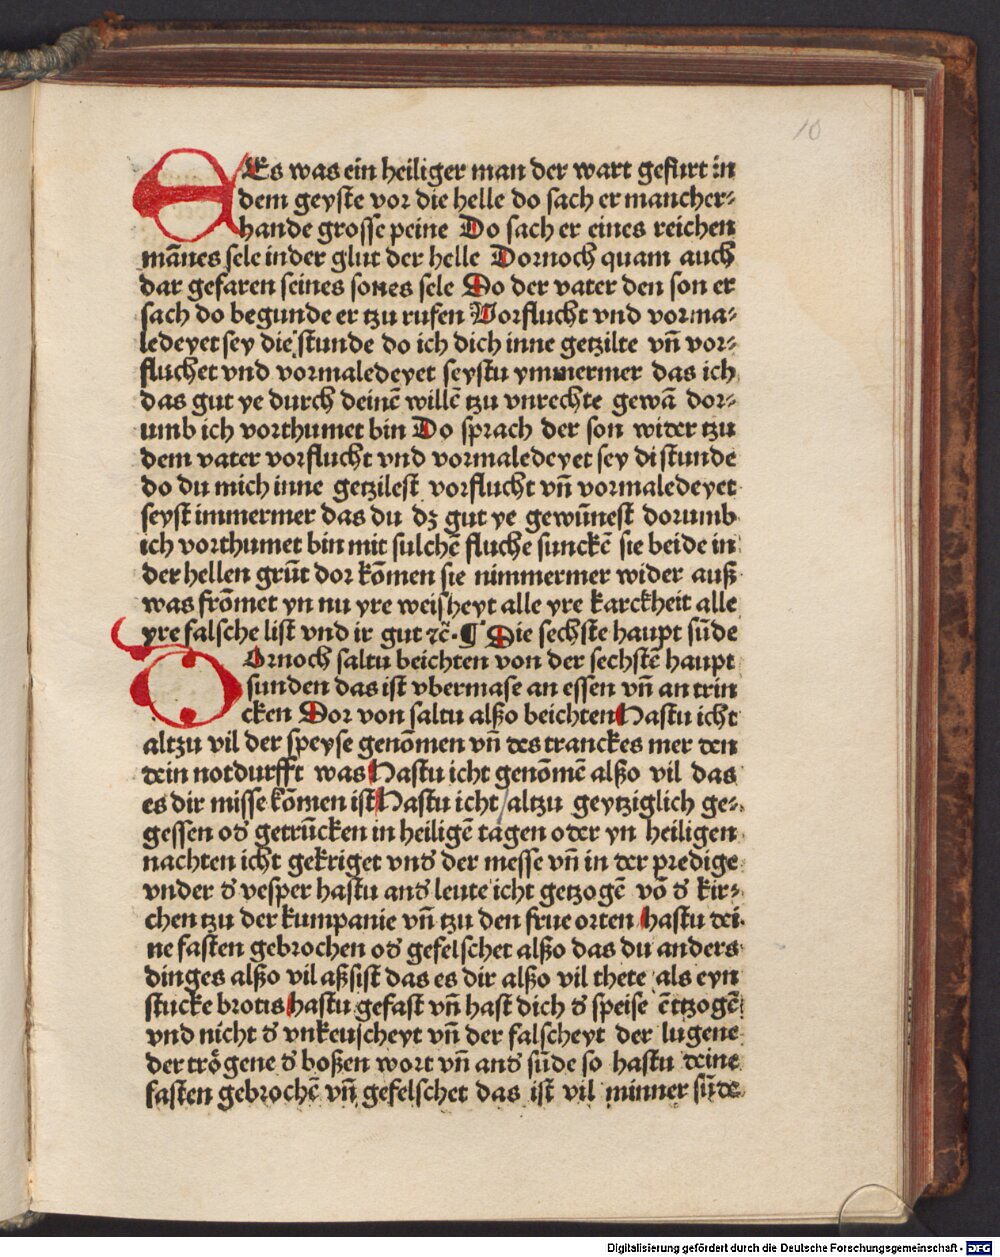 10
Es was ein heiliger man der wart gefurt in
dem geyste vor die helle do sach er mancher⸗
hande grosse peine Do sach er eines reichen
mānes sele in der glut der helle Dornoch quam auch
dar gefaren seines sones sele Do der vater den son er
sach do begunde er tzu rufen Vorflucht vnd vorma⸗
ledeyet sey die stunde do ich dich inne getzilte vn̄ vor⸗
fluchet vnd vormaledeyet seystu ymmermer das ich
das gut ye durch deinē willē tzu vnrechte gewā dor⸗
umb ich vorthumet bin Do sprach der son wider tzu
dem vater vorflucht vnd vormaledeyet sey di stunde
do du mich inne getzilest vorflucht vn̄ vormaledeyet
seyst immermer das du dz gut ye gewūnest dorumb
ich vorthumet bin mit sulchē fluche sunckē sie beide in
der hellen grūt dor kōmen sie nimmermer wider auß
was frōmet yn nu yre weisheyt alle yre karckheit alle
yre falsche list vnd ir gut ⁊c̄. ¶ Die sechste haupt sūde
Dornoch saltu beichten von der sechstē haupt
sunden das ist vbermase an essen vn̄ an trin
cken Dor von saltu alßo beichten Hastu icht
altzu vil der speyse genōmen vn̄ des tranckes mer den
dein notdurfft was Hastu icht genōmē alßo vil das
es dir misse kōmen ist Hastu icht altzu geytziglich ge⸗
gessen od̄ getrūcken in heiligē tagen oder yn heiligen
nachten icht gekriget vnd̄ der messe vn̄ in der predige
vnder d̄ vesper hastu and̄ leute icht getzogē vō d̄ kir⸗
chen tzu der kumpanie vn̄ tzu den frue orten hastu dei⸗
ne fasten gebrochen od̄ gefelschet alßo das du anders
dinges alßo vil aßsist das es dir alßo vil thete als eyn
stucke brotis hastu gefast vn̄ hast dich d̄ speise ētzogē
vnd nicht d̄ vnkeuscheyt vn̄ der falscheyt der lugene
der trögene d̄ boßen wort vn̄ and̄ sūde so hastu deine
fasten gebrochē vn̄ gefelschet das ist vil minner sūde
Digitalisierung gefördert durch die Deutsche Forschungsgemeinschaft - DFG